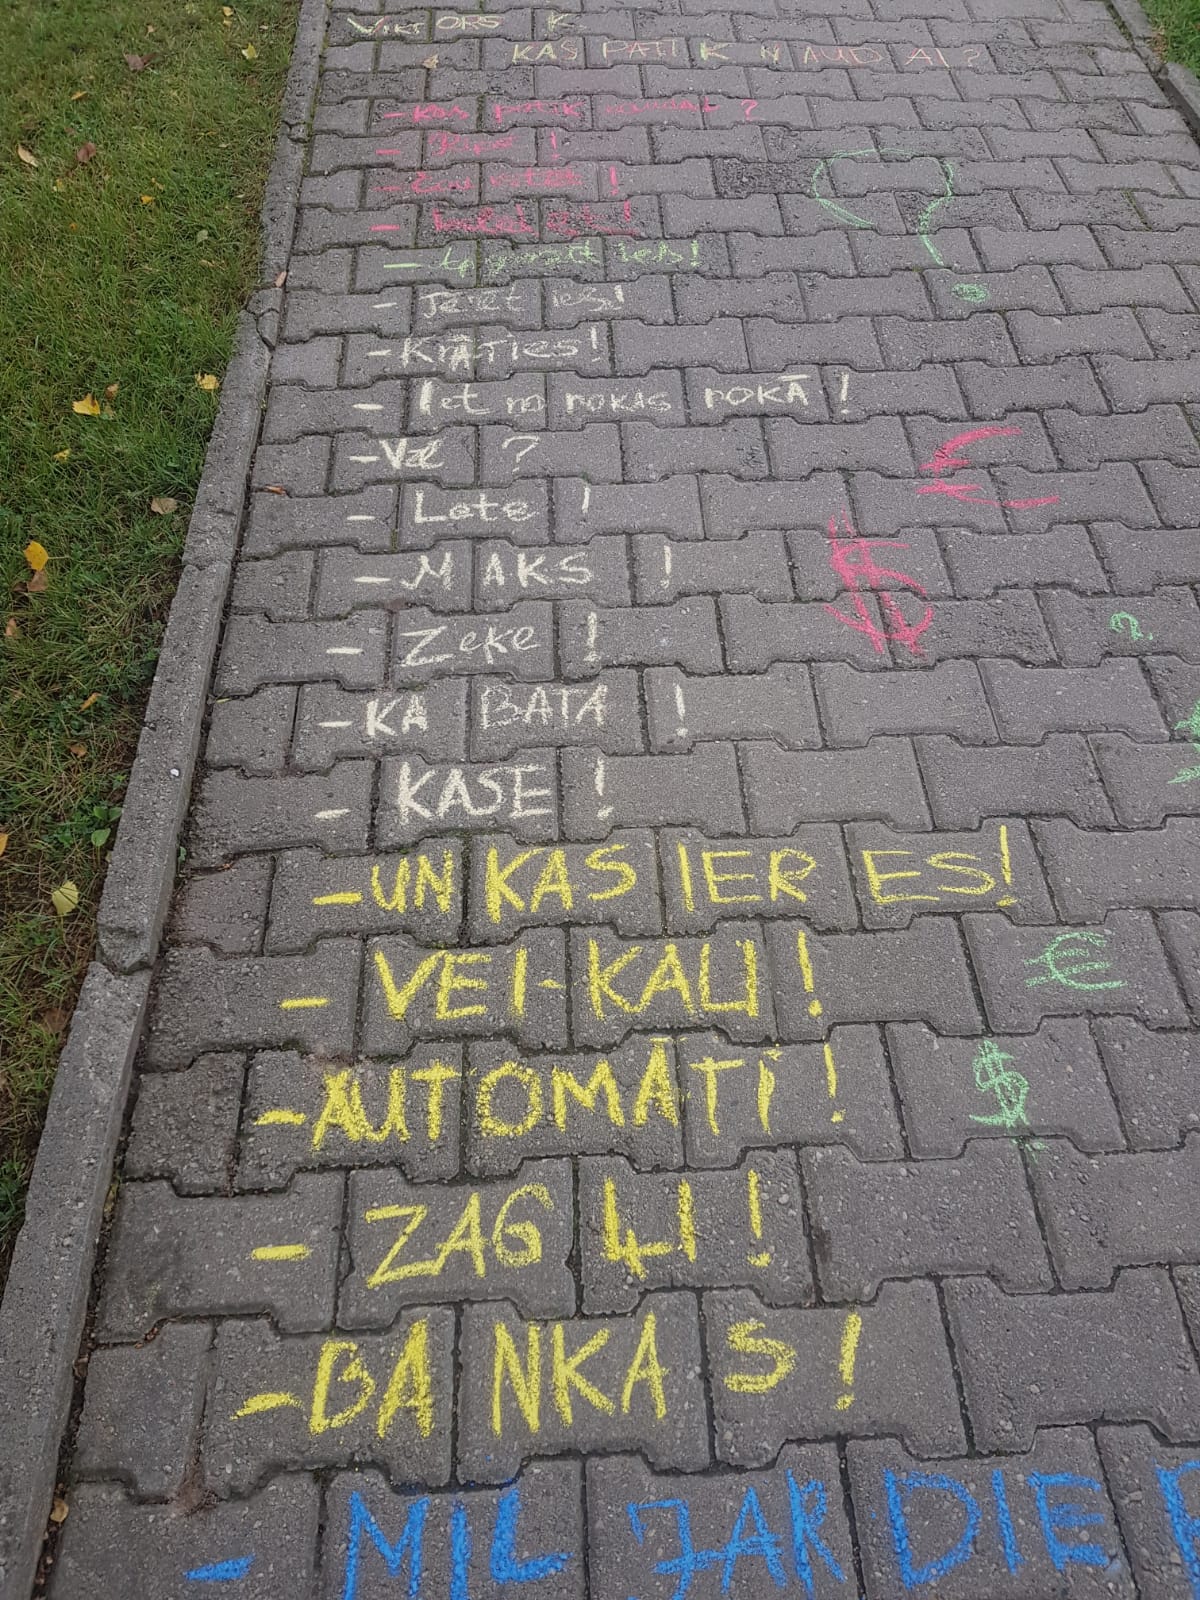 VIKTORS K.
KAS PATIK NAUDAI?
- Kas patik naudai?
- 
- !
- !
- Apgrozīties!
- Tērēties!
- KRĀTIES!
- Iet no rokas rokā!
- Vēl?
- Lote!
- MAKS!
- Zeķe!
- KABATA!
- KASE!
- UN KASIERES!
- VEI-KALI!
- AUTOMĀTI!
- ZAGĻI!
- BANKAS!
- MILJARDIE
€
$
?
€
$